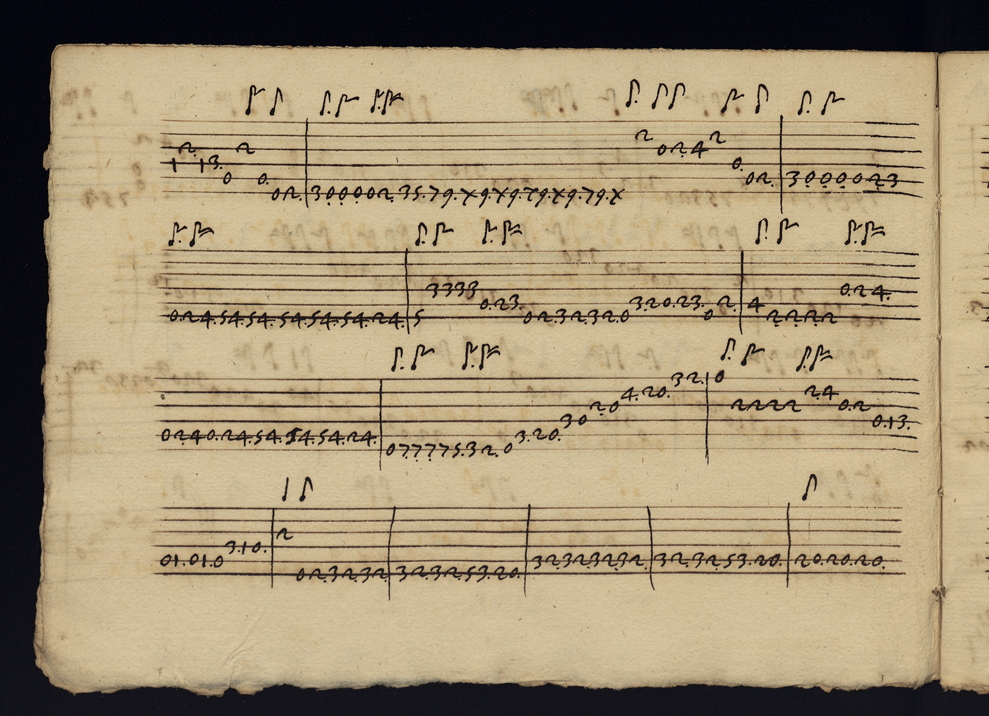 1 2. 1 3. 0 2 0. 0 2. 3. 0. 0. 0. 0 2. 3 5. 7 9. X 9. X 9. 7 9. X 9. 7 9. X 2 0 2 4 2 0. 0 2. 3 0 0 0 0 2 3
0. 2 4. 5 4. 5 4. 5 4. 5 4. 5 4. 2 4. 5 3 3 3 3 0. 2 3. 0 2. 3 2. 3 2. 0 3 2 0. 2 3. 0 2. 4 2. 2. 2. 2 0. 2 4.
0 2 4 0. 2 4. 5 4. 5 4. 5 4. 2 4. 0 7. 7. 7 5. 3 2. 0 3. 2 0. 3 0 2 0 4. 2 0. 3 2. 0 2 2 2 2 2. 4 0. 2 0. 1 3.
0 1. 0 1. 0 3. 1 0. 2 0 2. 3 2. 3 2. 3 2. 3 2. 5 3. 2 0. 3 2. 3 2. 3 2. 3 2. 3 2. 3 2. 5 3. 2 0. 2 0. 2 0. 2 0.